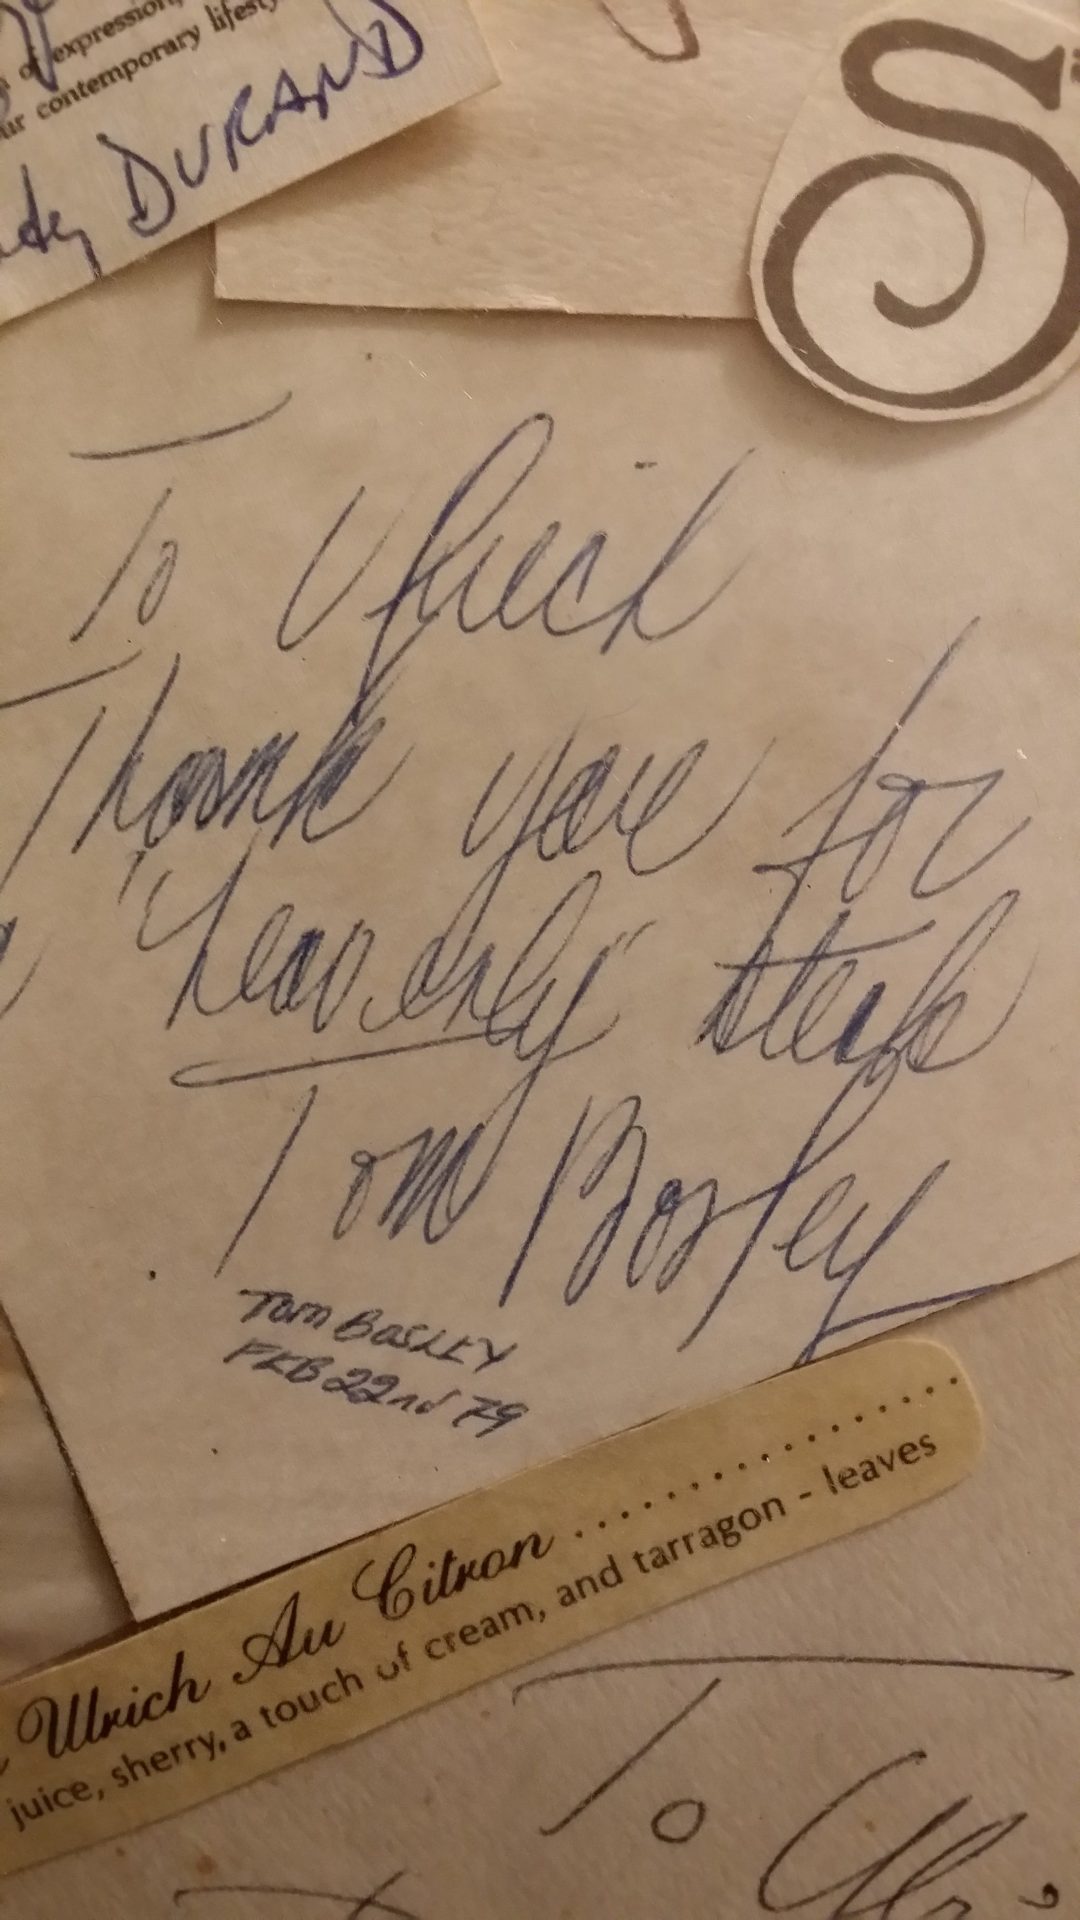 of expression,
ur contemporary lifesty
DURAND
S
To Ulrich
Thank you for
a "heavenly" steak
Tom Bosley
TOM BOSLEY
FEB 22nd 79
Ulrich Au Citron ....................
juice, sherry, a touch of cream, and tarragon - leaves
To Ulri